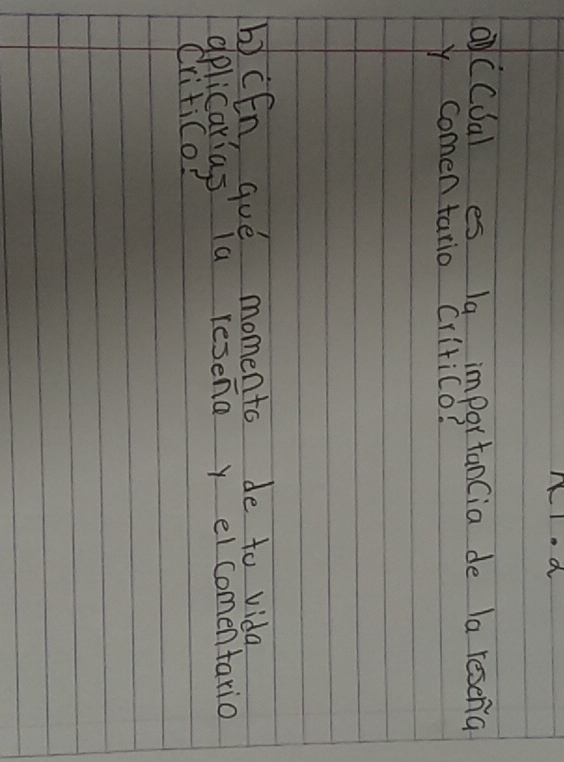 a) ¿Cúal es la importancia de la reseña
y comentario crítico?
b) ¿En qué momento de tu vida
aplicarías la reseña y el comentario
crítico?